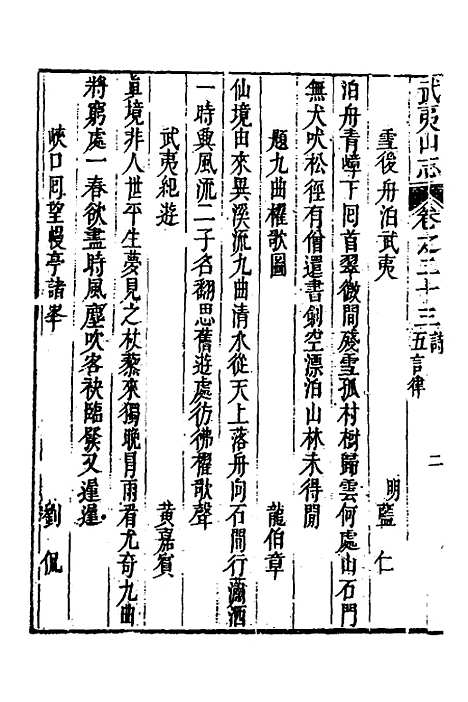 武夷山志 卷之二十三 詩 五言律 二
雪後舟泊武夷 明 藍仁
泊舟青嶂下囘首翠微間殘雪孤村樹歸雲何處山石門
無犬吠松徑有僧還書劍空漂泊山林未得閒
題九曲櫂歌圖 龍伯章
仙境由來異溪流九曲清水從天上落舟向石間行瀟洒
一時興風流二子名翻思舊遊處彷彿櫂歌聲
武夷紀遊 黃嘉賓
眞境非人世平生夢見之杖藜來獨晚冐雨看尤奇九曲
將窮處一春欲盡時風塵吹客袂臨發又遲遲
峽口囘望幔亭諸峯 劉侃